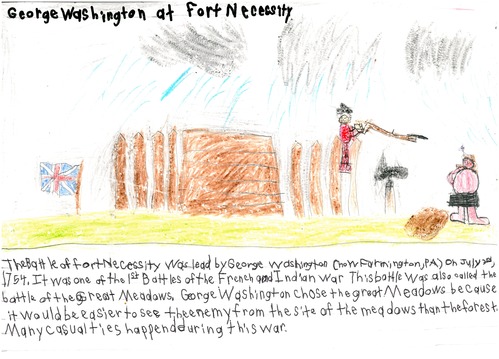 George Washington at Fort Necessity
The Battle of Fort Necessity was lead by George Washington (now Farmington, PA) on July
1754. It was one of the 1st Battles of the French and Indian War This battle was also called the
battle of the Great Meadows. George Washington chose the great Meadows because
it would be easier to see the enemy from the site of the meadows than the forest.
Many casualties happend during this war.